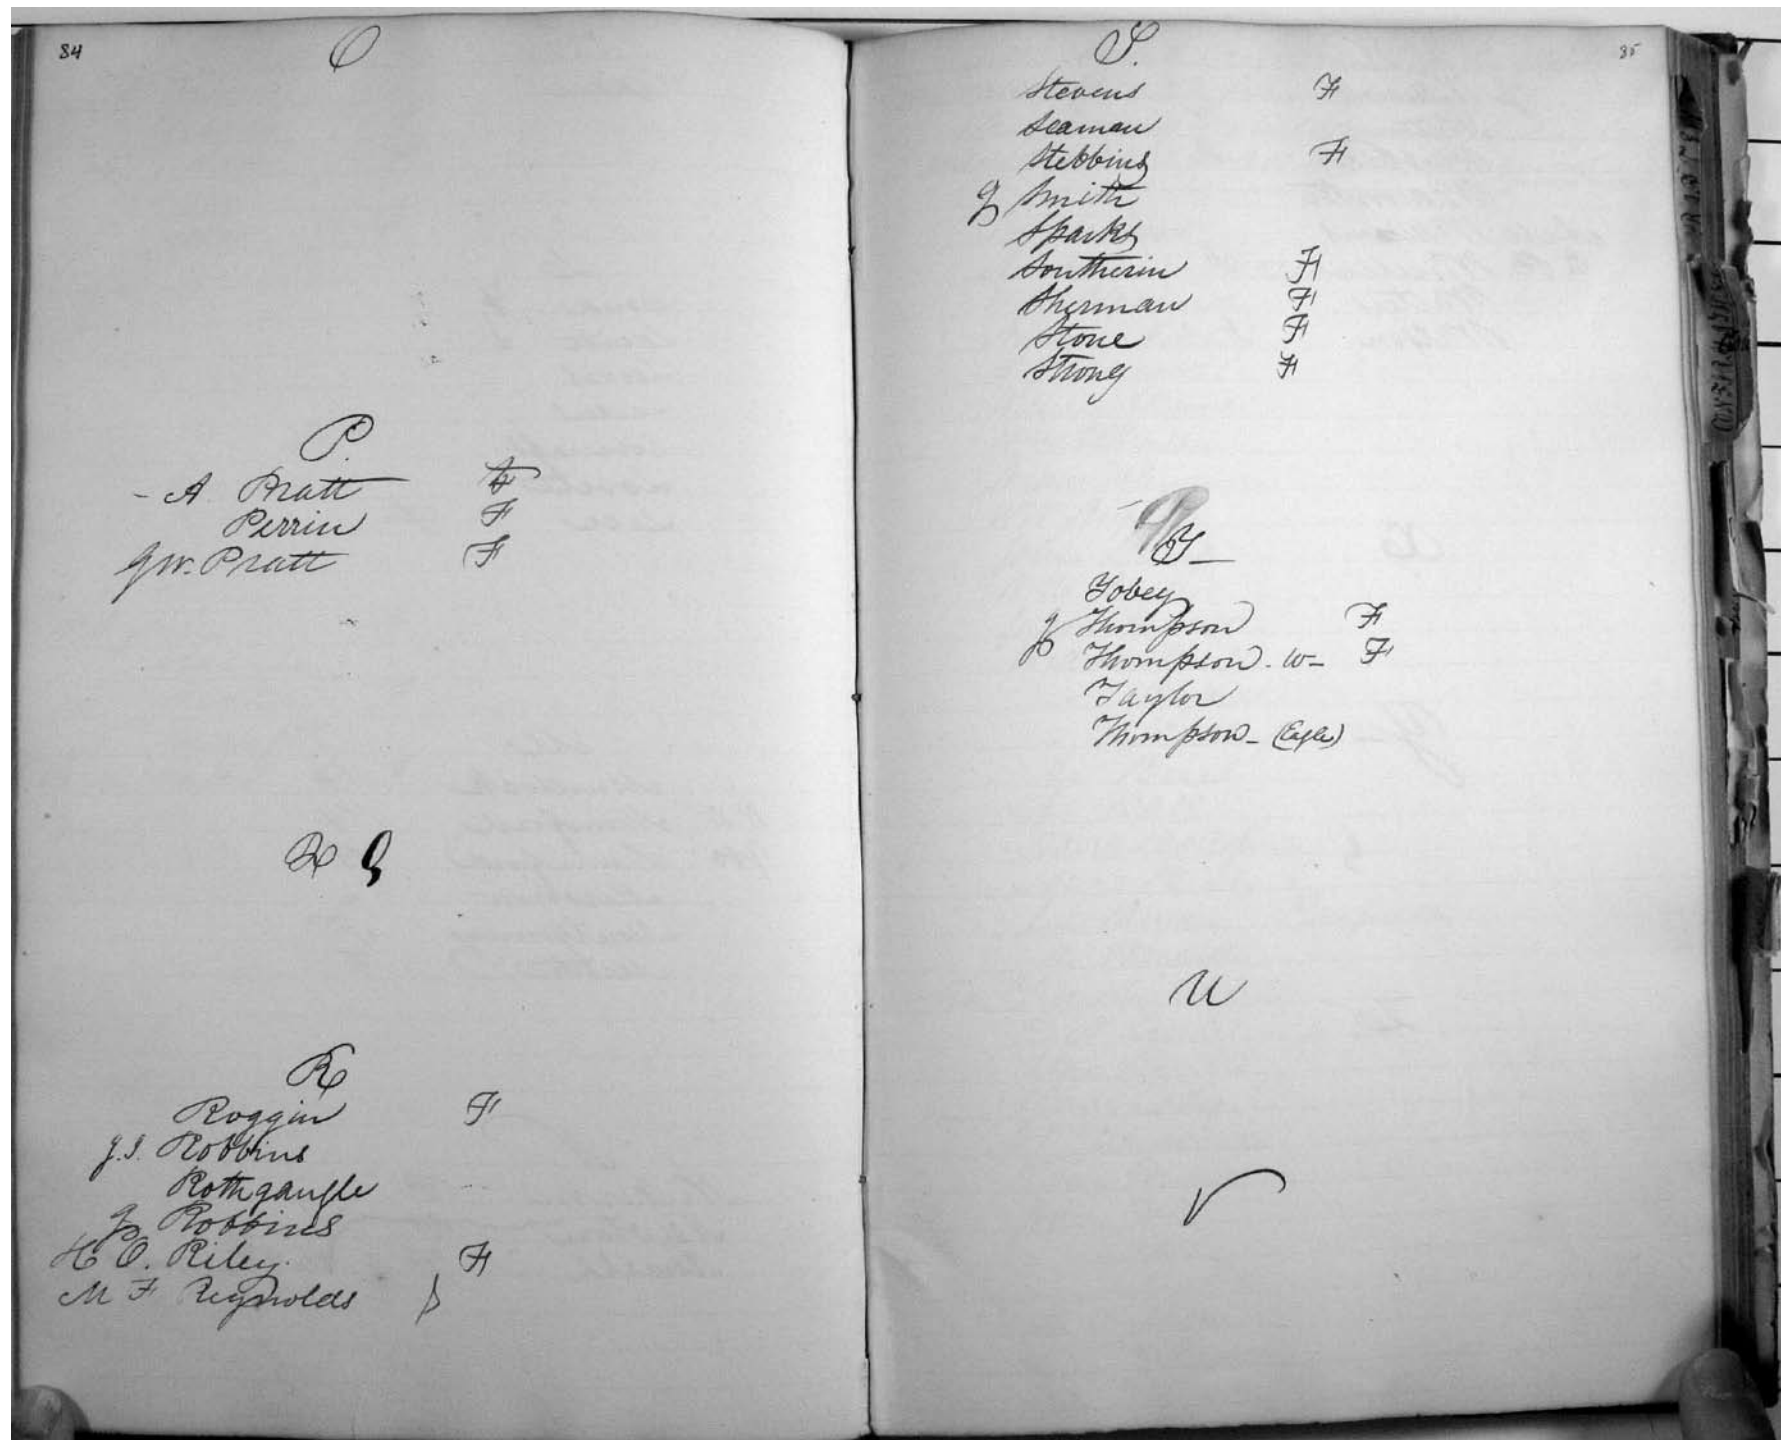 84
O
P.
- A. Pratt
Perrin F
G.W. Pratt F
R Q
R
Roggin F
J.S. Robbins
Rothgangle
Robbins
H O. Riley. F
M F Reynolds
85
S.
Stevens F
Seaman
Stebbins F
Smith
Sparks
Southerin F
Sherman F
Stone F
Strong F
T
Tobey
Thompson F
Thompson. W- F
Taylor
Thompson- (Eagle)
U
V